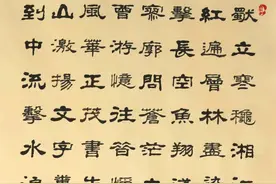 獨立寒穐湘江
紅遍層林盡染
擊長空魚翔淺
寥廓問蒼茫大
曾游憶往昔崢
風華正茂書生
山激揚文字糞
到中流擊水浪